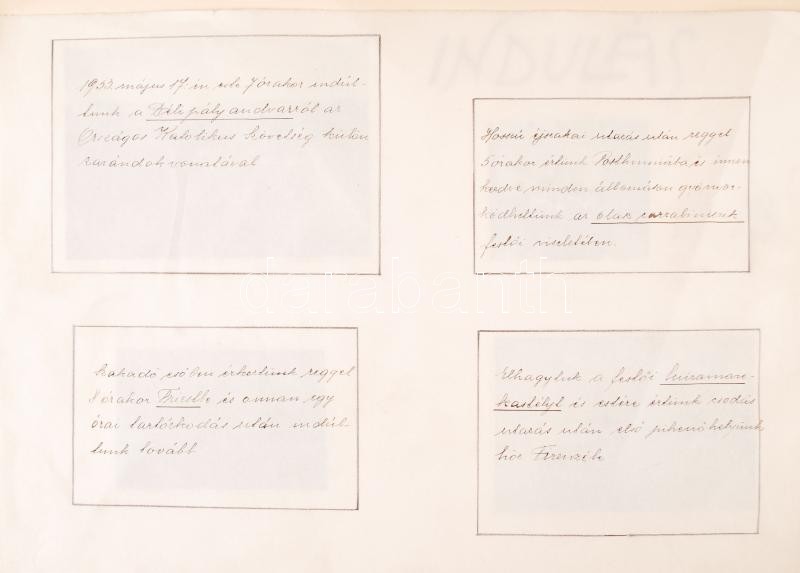 1933. május 17.-én este 7 órakor indúl-
tunk a Déli pályaudvarról az
Országos Katolikus Szövetség külön
zarándokvonatával
Hosszú éjszakai utazás után reggel
5 órakor értünk Posthumiába és innen
kezdve minden állomáson gyönyör-
ködhettünk az olasz carrabinierik
festői viseletében.
Szakadó esőben érkeztünk reggel
8 órakor Triestbe és onnan egy
órai tartózkodás után indúl-
tunk tovább
Elhagytuk a festői Miramare-
kastélyt és estére értünk csodás
utazás után első pihenőhelyünk
höz Firenzébe
darabanth